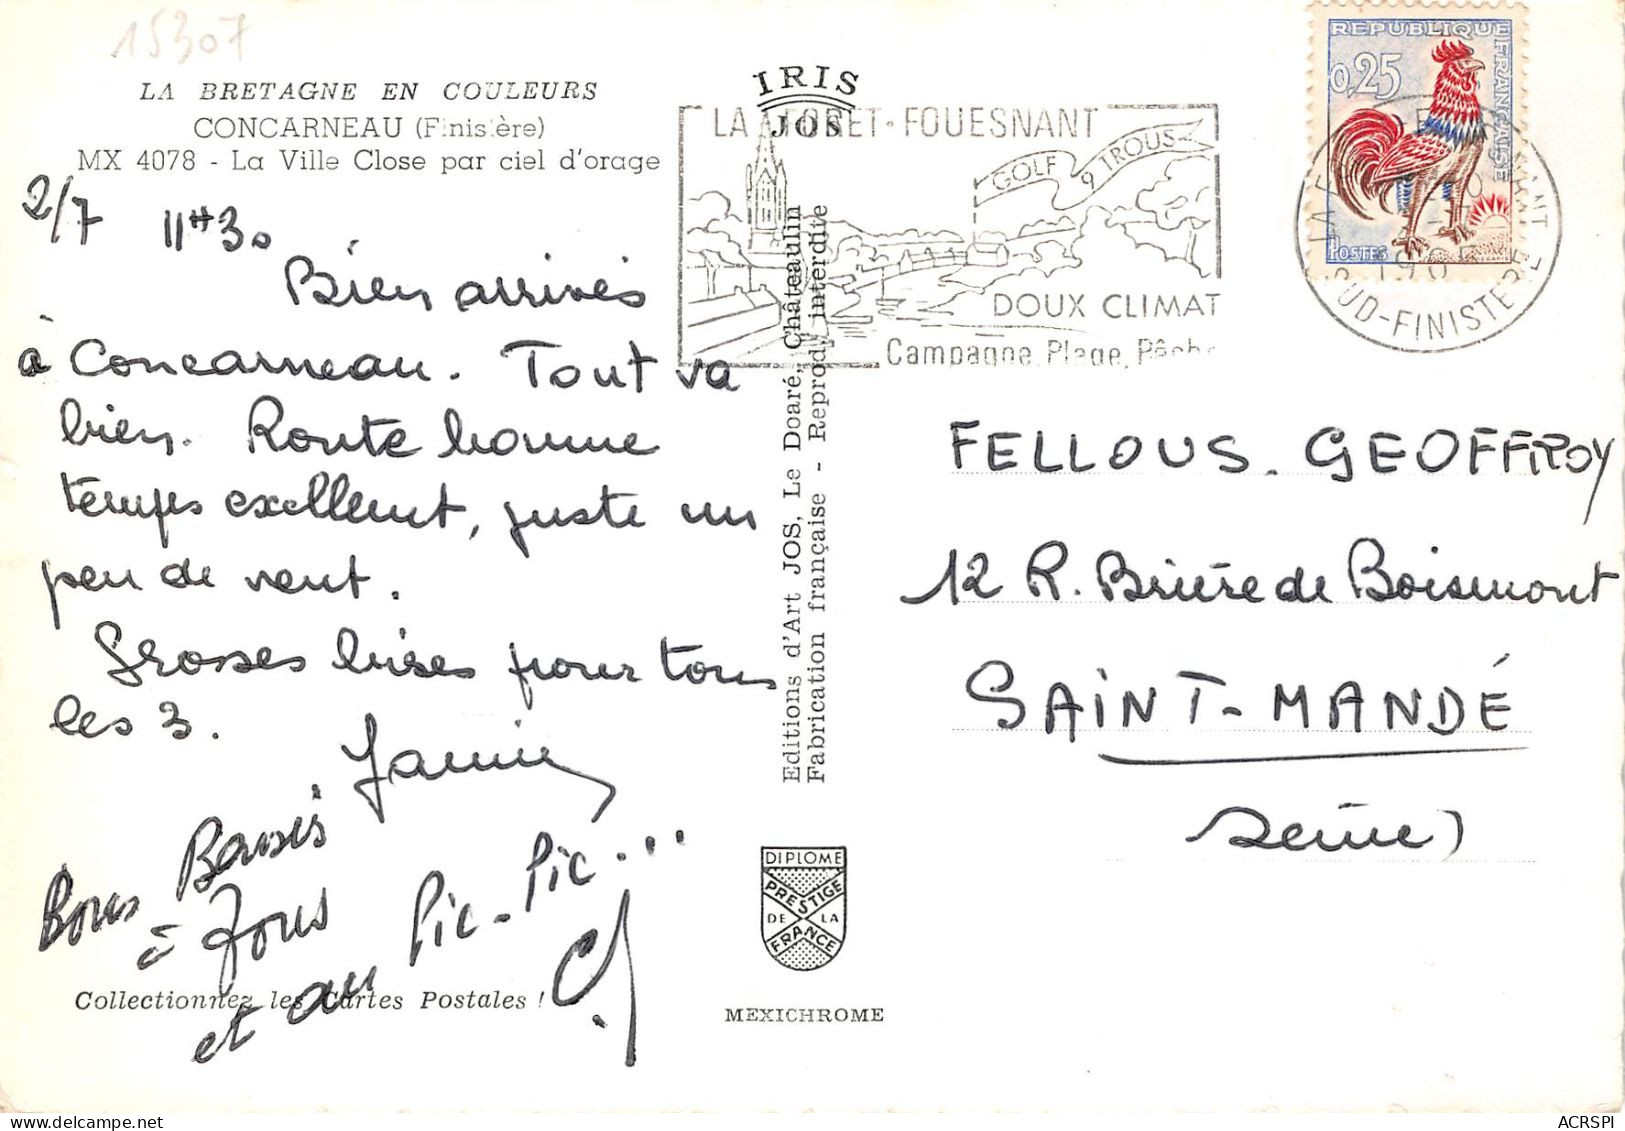 15307
LA BRETAGNE EN COULEURS
CONCARNEAU (Finistère)
MX 4078 - La Ville Close par ciel d'orage
2/7 11H30
Bien arrivés
à Concarneau. Tout va
bien. Route bonne
temps excellent, juste un
peu de vent.
Grosses bises pour tous
les 3.
Bons Baisers
à Tous
et au Pic-Pic...
Collectionnez les Cartes Postales !
IRIS
JOS
Editions d'Art JOS, Le Doaré, Châteaulin
Fabrication française - Reprod. interdite
DIPLOME
PRESTIGE
DE LA
FRANCE
MEXICHROME
LA FORET-FOUESNANT
GOLF 9 TROUS
DOUX CLIMAT
Campagne, Plage, Pêche
REPUBLIQUE FRANÇAISE
0,25
POSTES
SUD-FINISTERE
FELLOUS. GEOFFROY
12 R. Brière de Boismont
SAINT-MANDÉ
Seine)
ACRSPI